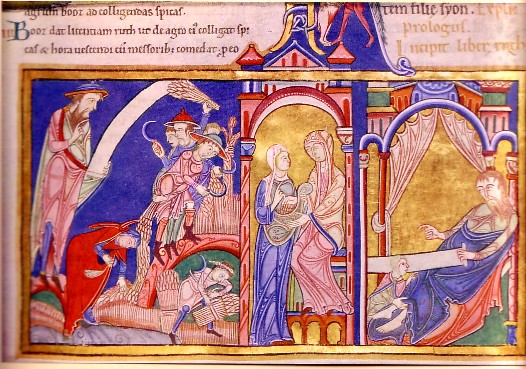 agrum boor ad colligendas spicas.
Boor dat licentiam ruth ut de agro ei᷒ colligat spi
cas & hora vescendi cū messorib; comedat.
filie syon. Explic
prologus.
Incipit liber